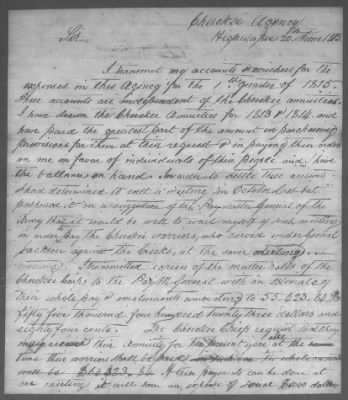 Cherokee Agency
Highwassee 20th June 181
Sir
I transmit my accounts & vouchers for the
expenses in this Agency for the 1st Quarter of 1815.
These accounts are independent of the Cherokee annuities
I have drawn the Cherokee Annuities for 1813 & 1814 and
have paid the greatest part of the amount in purchasing
provisions for them at their request & in paying their orders
on me in favor of individuals of their people and have
the ballance on hand. In order to settle these accounts
I had determined to call a meeting in October last but
postponed it on a suggestion of the Paymaster General of the
Army that it would be well to avail myself of such meeting
in order pay the Cherokee warriors, who served under General
Jackson against the Creeks, at the same meeting
meeting. I transmitted copies of the muster rolls of the
Cherokee Corps to the Pay M General with an Estimate of
their whole pay & emoluments amounting to 55.423.84
fifty five thousand four hundred twenty three dollars and
eighty four cents. The Cherokee Chiefs request that they
may receive their Annuity for the present year at the same
time their warriors shall be paid
will be $64.323.84 If these payments can be done at
one meeting it will save an expense of some $1000 dollars